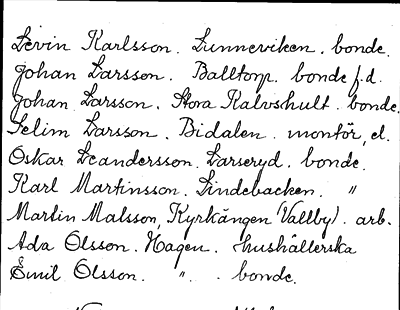 Levin Karlsson. Lunneviken. bonde.
Johan Larsson. Balltorp. bonde f.d.
Johan Larsson. Stora Kalvshult. bonde.
Selim Larsson. Bidalen. montör, el.
Oskar Leandersson. Larseryd. bonde.
Karl Martinsson. Lindebacken. "
Martin Malsson, Kyrkängen (Vallby). arb.
Ada Olsson. Hagen. hushållerska
Emil Olsson. " . bonde.